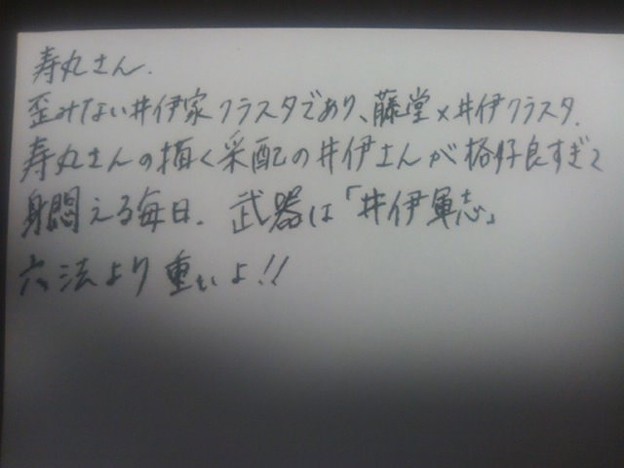 寿丸さん.
歪みない井伊家クラスタであり、藤堂×井伊クラスタ.
寿丸さんの描く采配の井伊さんが格好良すぎて
身悶える毎日. 武器は「井伊軍志」
六法より重いよ!!